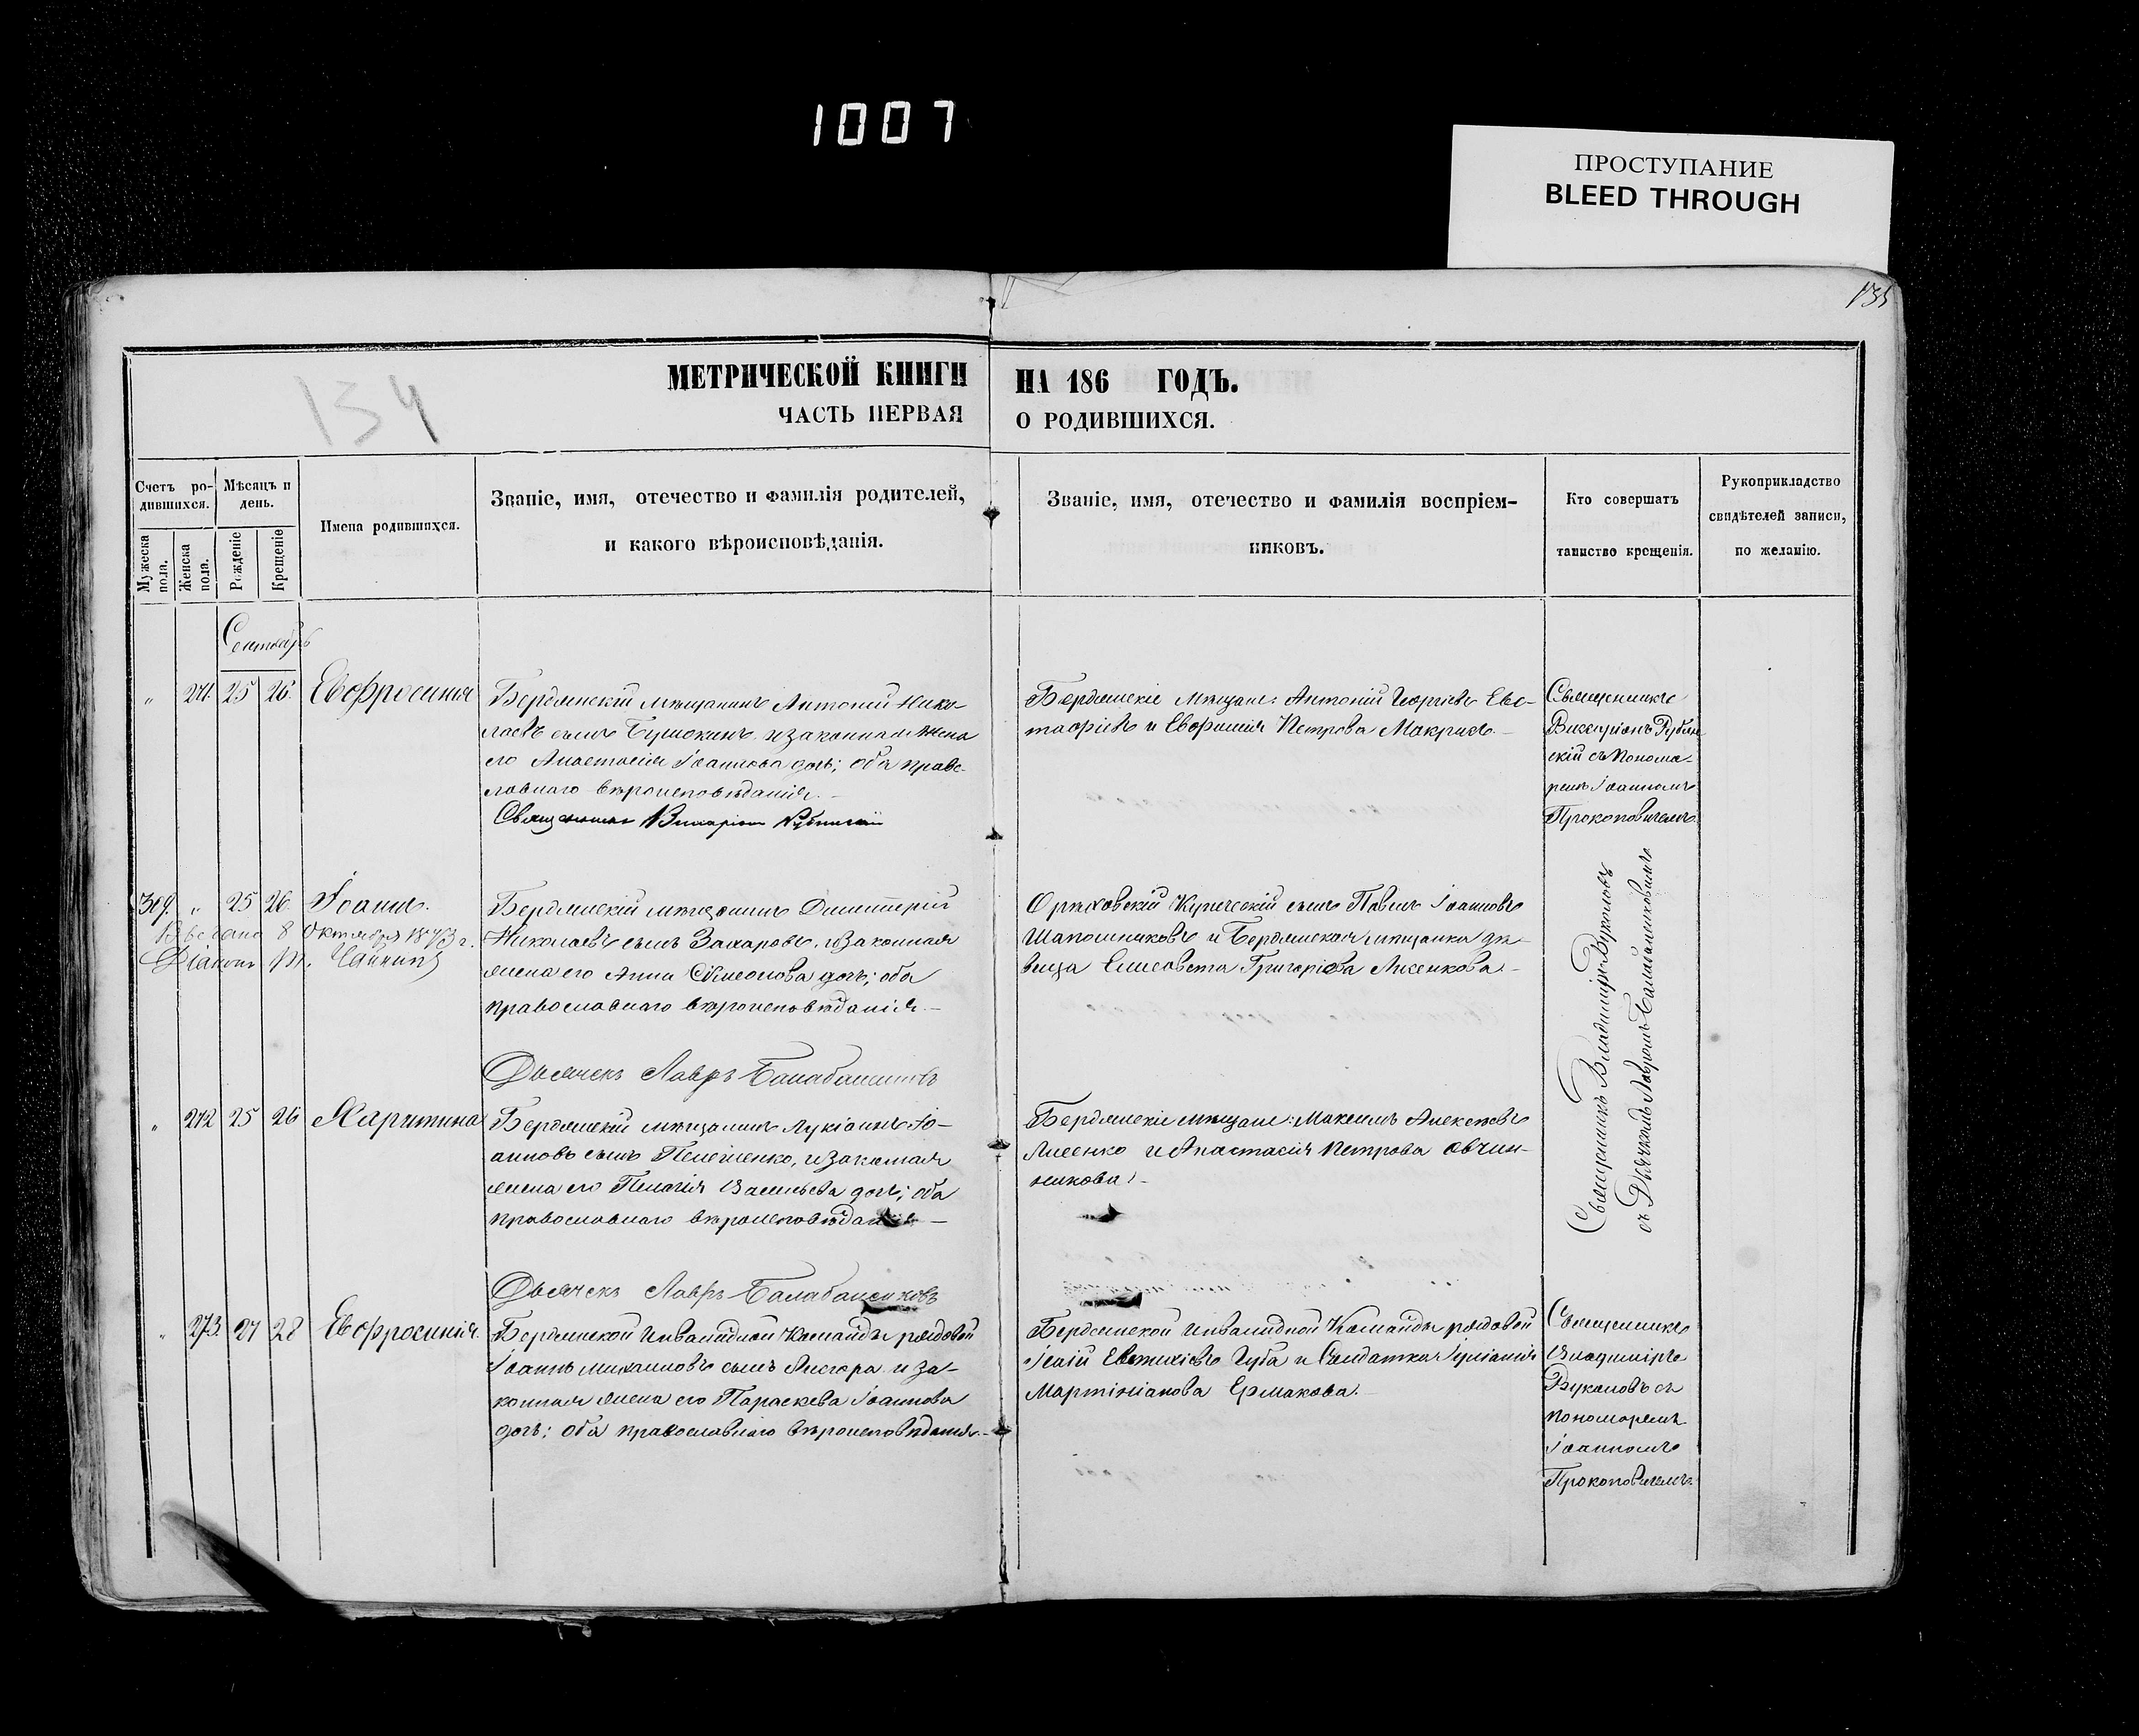 1007
ПРОСТУПАНИЕ
BLEED THROUGH
135
134
МЕТРИЧЕСКОЙ КНИГИ НА 186 ГОДЪ.
ЧАСТЬ ПЕРВАЯ О РОДИВШИХСЯ.
Счетъ ро-
дившихся.
Мужеска пола.
Женска пола.
Мѣсяцъ и
день.
Рожденіе
Крещеніе
Имена родившихся.
Званіе, имя, отечество и фамилія родителей,
и какого вѣроисповѣданія.
Званіе, имя, отечество и фамилія воспріем-
никовъ.
Кто совершатъ
таинство крещенія.
Рукоприкладство
свидѣтелей записи,
по желанію.
Сентябрь
" 271. 25 26. Евфросинія
Бердянскій мѣщанинъ Антоній Нико-
лаевъ сынъ и законная жена
его Анастасія Іоаннова дочь; оба право-
славнаго вѣроисповѣданія.
Священникъ Виссаріонъ
Бердянскіе мѣщане: Антоній Георгіевъ Евс-
тафіевъ и Евфимія Петрова Макрисъ.
Священникъ
Виссаріонъ
скій съ Понома-
ремъ Іоанномъ
Прокоповичемъ.
309. " 25 26 Іоаннъ.
Выдано 8 Октября 1873 г.
Діаконъ
Бердянскій мѣщанинъ Димитрій
Николаевъ сынъ Захаровъ, и законная
жена его Анна Сѵмеонова дочь; оба
православнаго вѣроисповѣданія.
Дьячекъ Лавръ Балабаненковъ
Орѣховскій Купеческій сынъ Павелъ Іоанновъ
Шапошниковъ и Бердянская мѣщанка дѣ-
вица Елисавета Григоріева Лисенкова.
Священникъ Владиміръ Вуколовъ
съ Дьячкомъ Лавромъ Балабаненковымъ
" 272 25 26 Харитина
Бердянскій мѣщанинъ Лукіанъ Іо-
анновъ сынъ Пелешенко, и законная
жена его Пелагія Васильева дочь; оба
православнаго вѣроисповѣданія
Дьячекъ Лавръ Балабаненковъ
Бердянскіе мѣщане: Максимъ Алексѣевъ
Лисенко и Анастасія Петрова Овчин-
никова.
" 273. 27 28 Евфросинія.
Бердянской Инвалидной Команды рядовой
Іоаннъ Михаиловъ сынъ и за-
конная жена его Параскева Іоаннова
дочь; оба православнаго вѣроисповѣданія.
Бердянской Инвалидной Команды рядовой
Исаій Евтихіевъ Губа и Солдатка Іуліанія
Мартініанова Ермакова.
Священникъ
Владиміръ
Вуколовъ съ
Пономаремъ
Іоанномъ
Прокоповичемъ.